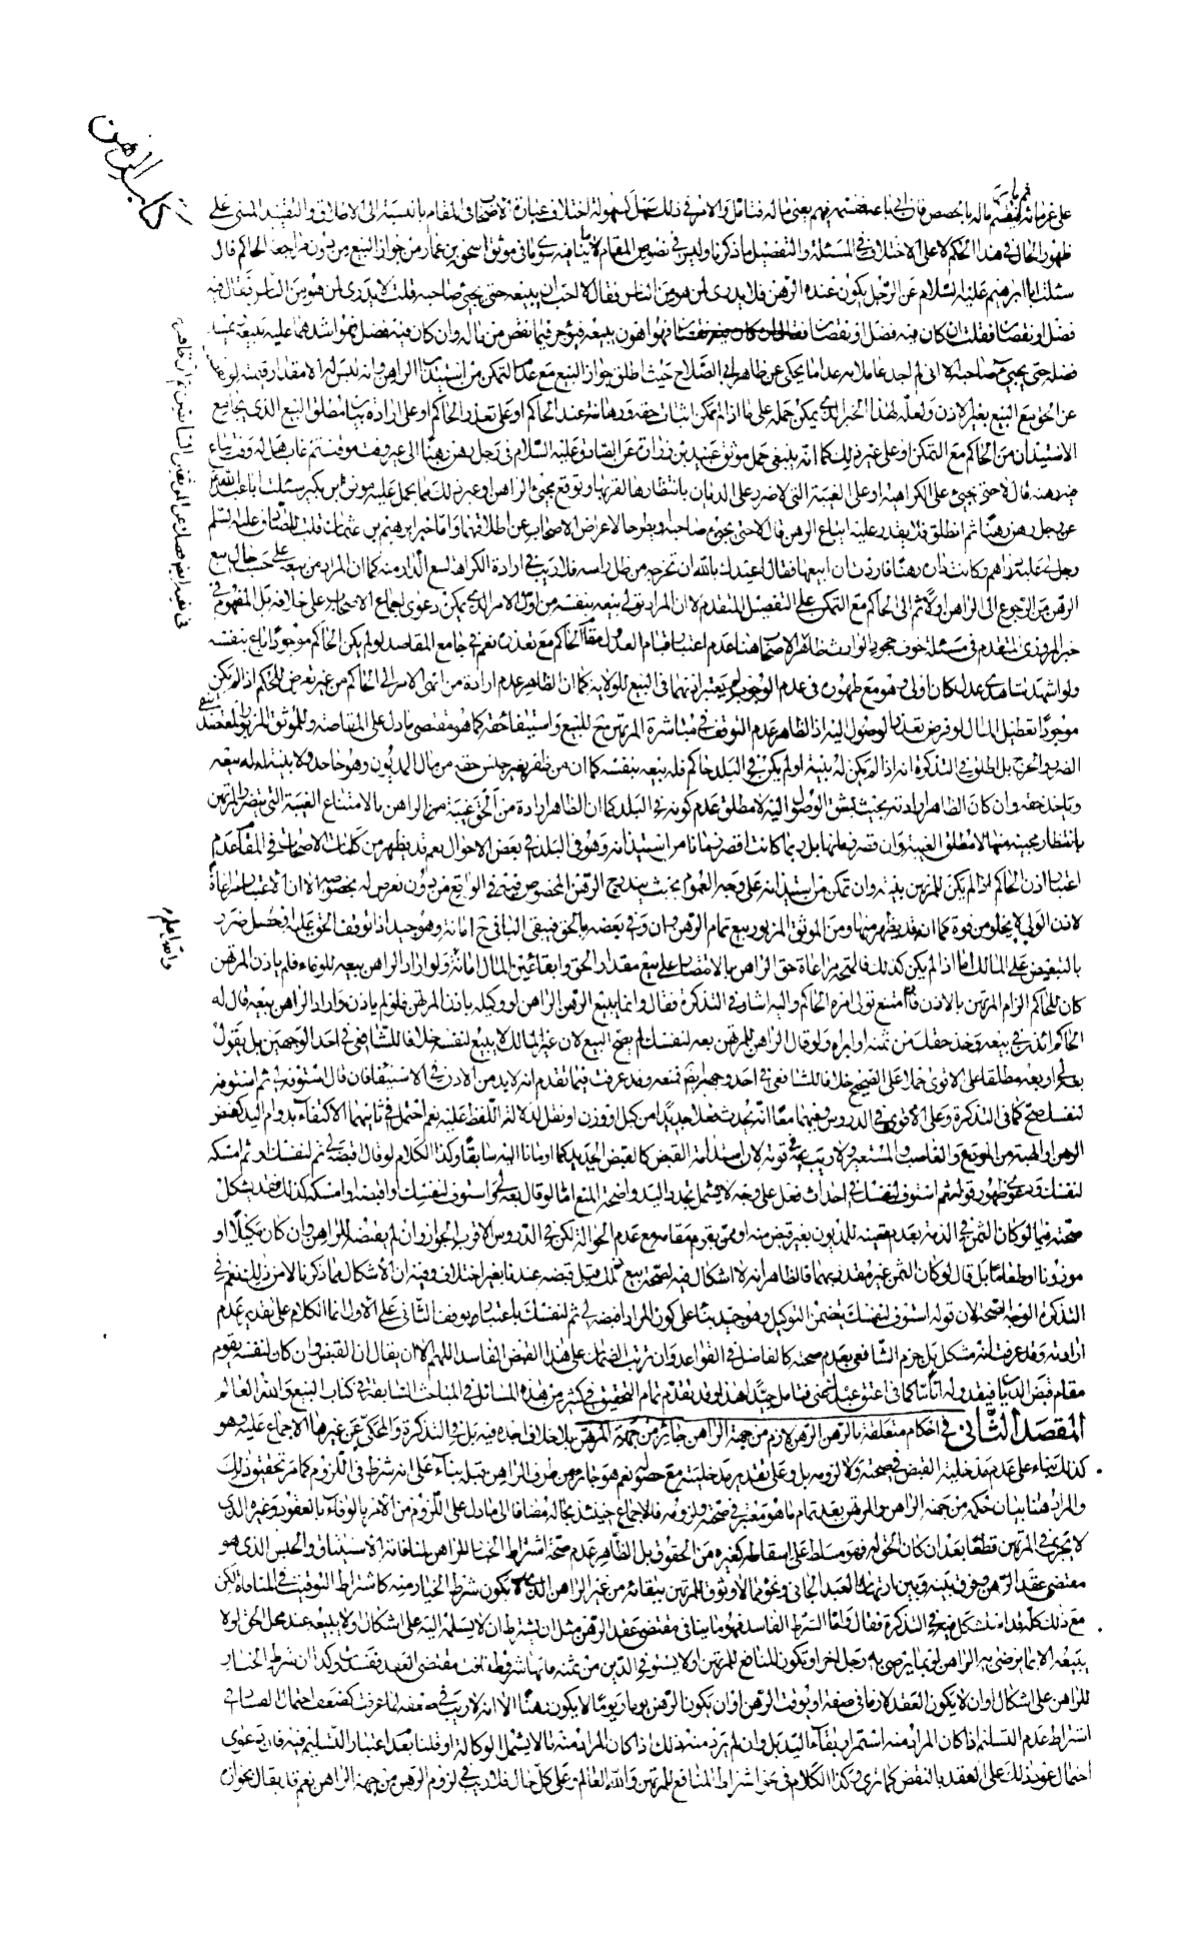 كتاب الرهن
على غرمائه فيقسم ماله بالحصص فان أبى باعه فقسمه بينهم يعني ماله فتأمل والامر في ذلك سهل لسهولة اختلاف عبارة الأصحاب في المقام بالنسبة الى الاطلاق والتقييد المبني على
ظهور الحال في هذا الحكم لا على الاختلاف في المسئلة والتفصيل ما ذكرنا وليس في نصوص المقام ما ينافيه سوى ما في موثق اسحق بن عمار من جواز البيع من دون مراجعة الحاكم قال
سئلت ابا ابرهيم عليه السلام عن الرجل يكون عنده الرهن فلا يدرى لمن هو من الناس فقال لا احب ان يبيعه حتى يجئ صاحبه قلت لا يدرى لمن هو من الناس فقال فيه
فضل او نقصان فقلت ان كان فيه فضل او نقصان فقال ان كان فيه نقصان فهو اهون يبيعه فيؤجر فيما نقص من ماله وان كان فيه فضل فهو اشدهما عليه يبيعه يمسك
فضله حتى يجئ صاحبه الا انى لم اجد عاملا به عدا ما يحكى عن ظاهر ابي الصلاح حيث اطلق جواز البيع مع عدم التمكن من استيذان الراهن وانه ليس له الا مقدار
عن الحق مع البيع بغير الاذن ولعله لهذا الخبر الذي يمكن حمله على ما اذا لم يمكن اثبات حقه ورهانته عند الحاكم او على تعذر الحاكم او على ارادة بيان مطلق البيع الذي يجامع
الاستيذان من الحاكم مع التمكن او على غير ذلك كما انه ينبغي حمل موثق عبيد بن زرارة عن الصادق عليه السلام في رجل رهن رهنا الى غير وقت ثم غاب هل له وقت يباع
فيه رهنه قال لا حتى يجئ على الكراهة او على الغيبة التي لا ضرر على الديان بانتظارها لقربها وتوقع مجئ الراهن او غير ذلك مما يحمل عليه موثق ابن بكير سئلت ابا عبد الله
عن رجل رهن رهنا ثم انطلق فلا يقدر عليه ايباع الرهن قال لا حتى يجئ صاحبه ويطرحا لاعراض الاصحاب عن اطلاقهما واما خبر ابرهيم بن عثمان قلت للصادق عليه السلم
رجل لي عليه دراهم وكانت داره رهنا فاردت ان ابيعها فقال اعيذك بالله ان تخرجه من ظل راسه فلا ريب في ارادة الكراهة لبيع الدار منه كما ان المراد من بيعه على حسب حال بيع
الرهن من الرجوع الى الراهن اولا ثم الى الحاكم مع التمكن على التفصيل المتقدم لا ان المراد تولى بيعه بنفسه من اول الامر الذي يمكن دعوى اجماع الاصحاب على خلافه بل المفهوم في
خبر المروزي المتقدم في مسئلة خوف جحود الوارث ظاهر الاصحاب هنا عدم اعتبار قيام العدل مقام الحاكم مع تعذره نعم في جامع المقاصد لو لم يكن الحاكم موجودا باع بنفسه
ولو اشهد شاهدي عدل كان اولى وهو مع ظهوره في عدم الوجوب لم يعتبر اذنهما في البيع للولاية كما ان الظاهر عدم ارادة من انهى الامر الى الحاكم من غير تعرض للحكم اذا لم يكن
موجودا تعطيل المال لو فرض تعذر الوصول اليه اذ الظاهر عدم التوقف في مباشرة المرتهن ح للبيع واستيفاء حقه كما هو مقتضى ما دل على المقاصة وللموثق المزبور المعتضد بنفي
الضرر والحرج بل اطلق في التذكرة انه اذا لم يكن له بينة او لم يكن في البلد حاكم فله بيعه بنفسه كما ان من ظفر بغير جنس حقه من مال المديون وهو جاحد ولا بينة له له بيعه
وياخذ حقه وان كان الظاهر ارادته بحيث يشق الوصول اليه لا مطلق عدم كونه في البلد كما ان الظاهر ارادة من الحق غيبة الراهن بالامتناع الغيبة التي يتضرر المرتهن
بانتظار مجيئه منها لا مطلق الغيبة وان قصر زمانها بل ربما كانت اقصر زمانا من استيذانه وهو في البلد في بعض الاحوال نعم قد يظهر من كلمات الاصحاب في المقام عدم
اعتبار اذن الحاكم اذا لم يكن للمرتهن بينة وان تمكن من استيذانه على وجه العموم بحيث يندرج الرهن المخصوص فيه في الواقع من دون تعرض له بخصوصه الا ان الاعتبار مراعاة
لاذن الولي لا يخلو من قوة كما انه قد يظهر منها ومن الموثق المزبور بيع تمام الرهن وان وفى بعضه بالحق فيبقى الباقي ح امانة وهو جيد اذا توقف الحق عليه او حصل ضرر
بالتبعيض على المالك اما اذا لم يكن كذلك فالمتجه مراعاة حق الراهن بالاقتصار على بيع مقدار الحق وابقاء عين المال امانة ولو اراد الراهن بيعه للوفاء فلم ياذن المرتهن
كان للحاكم الزام المرتهن بالاذن فان امتنع تولى امره الحاكم واليه اشار في التذكرة فقال وانما يبيع الرهن الراهن او وكيله باذن المرتهن فلو لم ياذن واراد الراهن بيعه قال له
الحاكم ائذن في بيعه وخذ حقك من ثمنه او ابراه ولو قال الراهن للمرتهن بعه لنفسك لم يصح البيع لان غير المالك لا يبيع لنفسه خلافا للشافعي في احد الوجهين بل يقول
بعه لي او بعه مطلقا على الاقوى حملا على الصحيح خلافا للشافعي في احد وجهيه نعم فمنعه وقد عرفت فيما تقدم انه لا بد من الاذن في الاستيفاء فان قال استوفه لي ثم استوفه
لنفسك صح كما في التذكرة وعلى الاقوى في الدروس وفيهما معا انه يحدث فعلا جديدا من كيل او وزن او نقل لدلالة اللفظ عليه نعم احتمل في ثانيهما الاكتفاء بدوام اليد كقبض
الرهن او الهبة من المودع والغاصب والمستعير ولا ريب في قوته لان استدامة القبض كالقبض الجديد كما اومانا اليه سابقا وكذا الكلام لو قال اقبضه لي ثم لنفسك او ثم امسكه
لنفسك ودعوى ظهور قوله ثم استوف لنفسك في احداث فعل على وجه لا يشمل تجدد اليد واضحة المنع اما لو قال بعه لي واستوف لنفسك او اقبضه وامسكه كذلك فقد يشكل
صحته فيما لو كان الثمن في الذمة بعدم تعينه للمديون بغير قبض منه او ممن يقوم مقامه مع عدم الحوالة لكن في الدروس الاقرب الجواز وان لم يقبضه الراهن وان كان مكيلا او
موزونا او طعاما بل قال لو كان الثمن غير مقدر بهما فالظاهر انه لا اشكال فيه لصحة بيع ذلك قبل قبضه عندنا بغير اختلاف وفيه ان الاشكال مما ذكرنا لا من ذلك نعم في
التذكرة الوجه الصحة لان قوله استوف لنفسك يتضمن التوكيل وهو جيد بناء على كون المراد اقبضه لي ثم لنفسك باعتبار توقف الثاني على الاول انما الكلام على تقدير عدم
ارادته وقد عرفت انه مشكل بل جزم الشافعي بعدم صحته كالفاضل في القواعد وان رتب الضمان على هذا القبض الفاسد اللهم الا ان يقال ان القبض وان كان لنفسه يقوم
مقام قبض المديون كما في اعتق عبدك عني فتامل جيدا هذا وقد تقدم تمام التحقيق في كثير من هذه المسائل في المباحث السابقة في كتاب البيع والله العالم
المقصد الثاني في احكام متعلقة بالرهن الرهن لازم من جهة الراهن جائز من جهة المرتهن بلا خلاف اجده فيه بل في التذكرة والمحكي عن غيرها الاجماع عليه وهو
كذلك بناء على عدم مدخلية القبض في صحته ولا لزومه بل وعلى تقدير مدخليته مع حصوله نعم هو جائز من طرف الراهن قبله بناء على انه شرط في اللزوم كما مر تحقيق ذلك
والمراد هنا بيان حكمه من جهة الراهن والمرتهن بعد تمام ما هو معتبر في صحته ولزومه فالاجماع حينئذ بحاله مضافا الى ما دل على اللزوم من الامر بالوفاء بالعقود وغيره الذي
لا يجري في المرتهن قطعا بعد ان كان الحق له فهو مسلط على اسقاطه كغيره من الحقوق بل الظاهر عدم صحة اشتراط الخيار للراهن لمنافاته الاستيثاق والحبس الذي هو
مقتضى عقد الرهن وفرق بينه وبين ارتهان العبد الجاني ونحوه مما لا وثوق للمرتهن ببقائه من غير الراهن الذي لا يكون شرط الخيار منه كاشتراط التوقيت في المنافاة لكن
مع ذلك كله قد استشكل فيه في التذكرة فقال واما الشرط الفاسد فهو ما ينافي مقتضى عقد الرهن مثل ان يشترط ان لا يسلمه اليه على اشكال ولا يبيعه عند محل الحق او لا
يبيعه الا بما يرضى به الراهن او بما يرضى به رجل اخر او تكون المنافع للمرتهن او لا يستوفي الدين من ثمنه فانها شروط نافت مقتضى العقد ففسدت وكذا ان شرط الخيار
للراهن على اشكال او ان لا يكون العقد لازما في صفته او يوقت الرهن او ان يكون الرهن يوما ويوما لا يكون رهنا الا انه لا ريب في ضعفه لما عرفت كضعف احتمال الفساد في
اشتراط عدم التسليم اذا كان المراد منه استمرار بقاء اليد بل وان لم يرد منه ذلك اذا كان المراد منه ما لا يشمل الوكالة او قلنا بعدم اعتبار التسليم فيه فان دعوى
احتمال عود ذلك على العقد بالنقض كما ترى وكذا الكلام في جواز اشتراط المنافع للمرتهن والله العالم وعلى كل حال فلا ريب في لزوم الرهن من جهة الراهن نعم قد يقال بجواز
والله اعلم